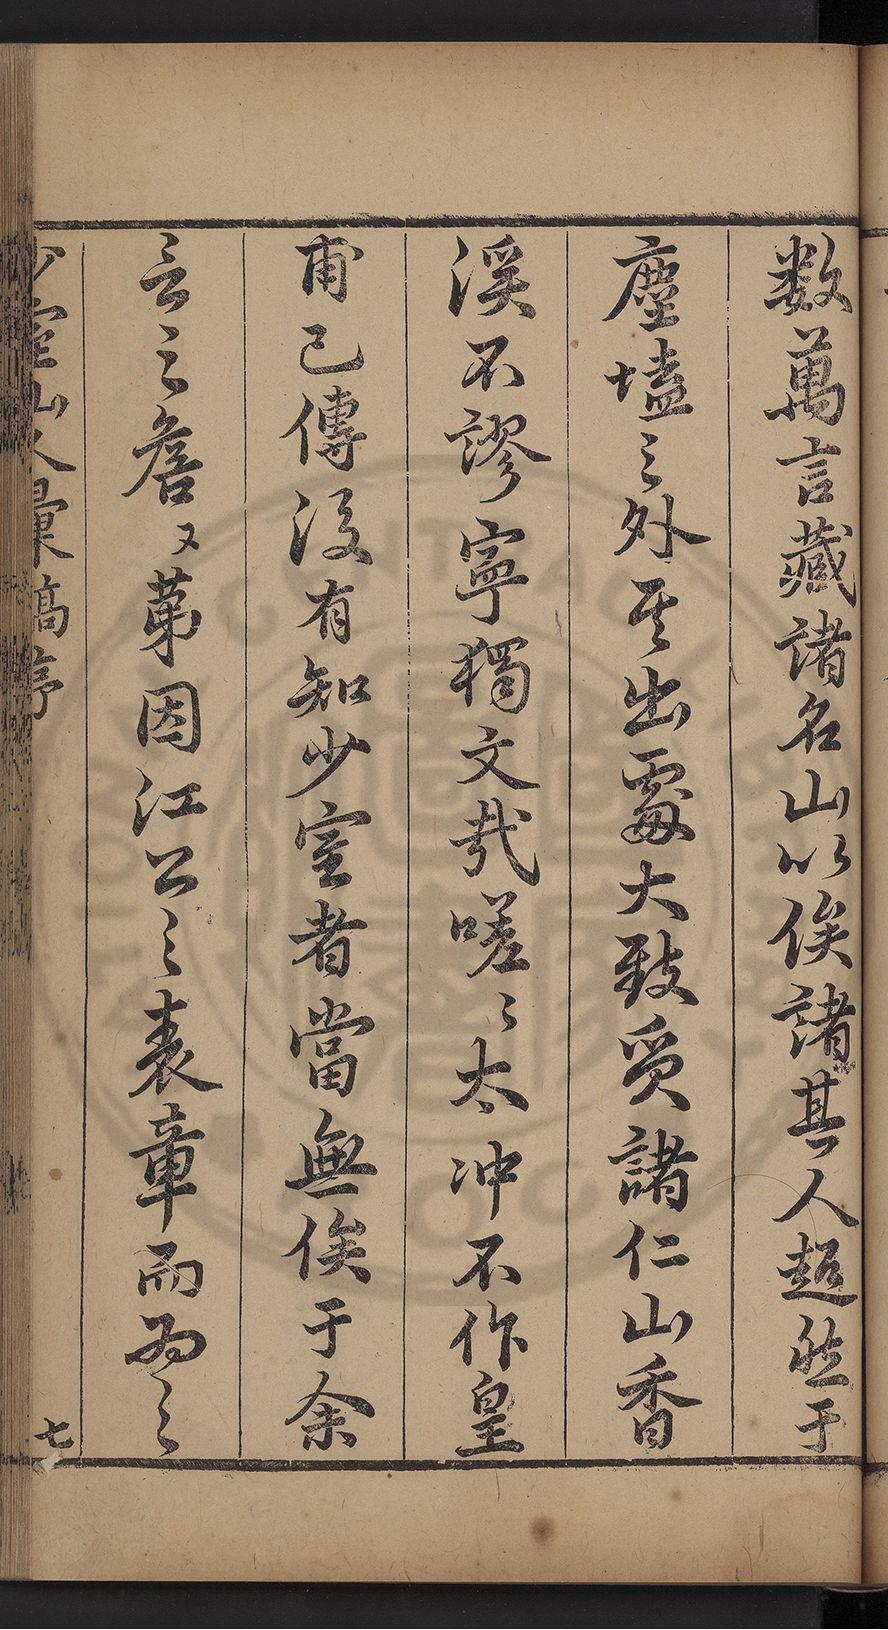 数萬言藏諸名山以俟諸其人超然于
塵壒之外其出處大致質諸仁山香
溪不謬寧獨文哉嗟〻太冲不作皇
甫已傳後有知少室者當無俟于余
言之詹〻第因江公之表章而為之
少室山人彙稿序
七